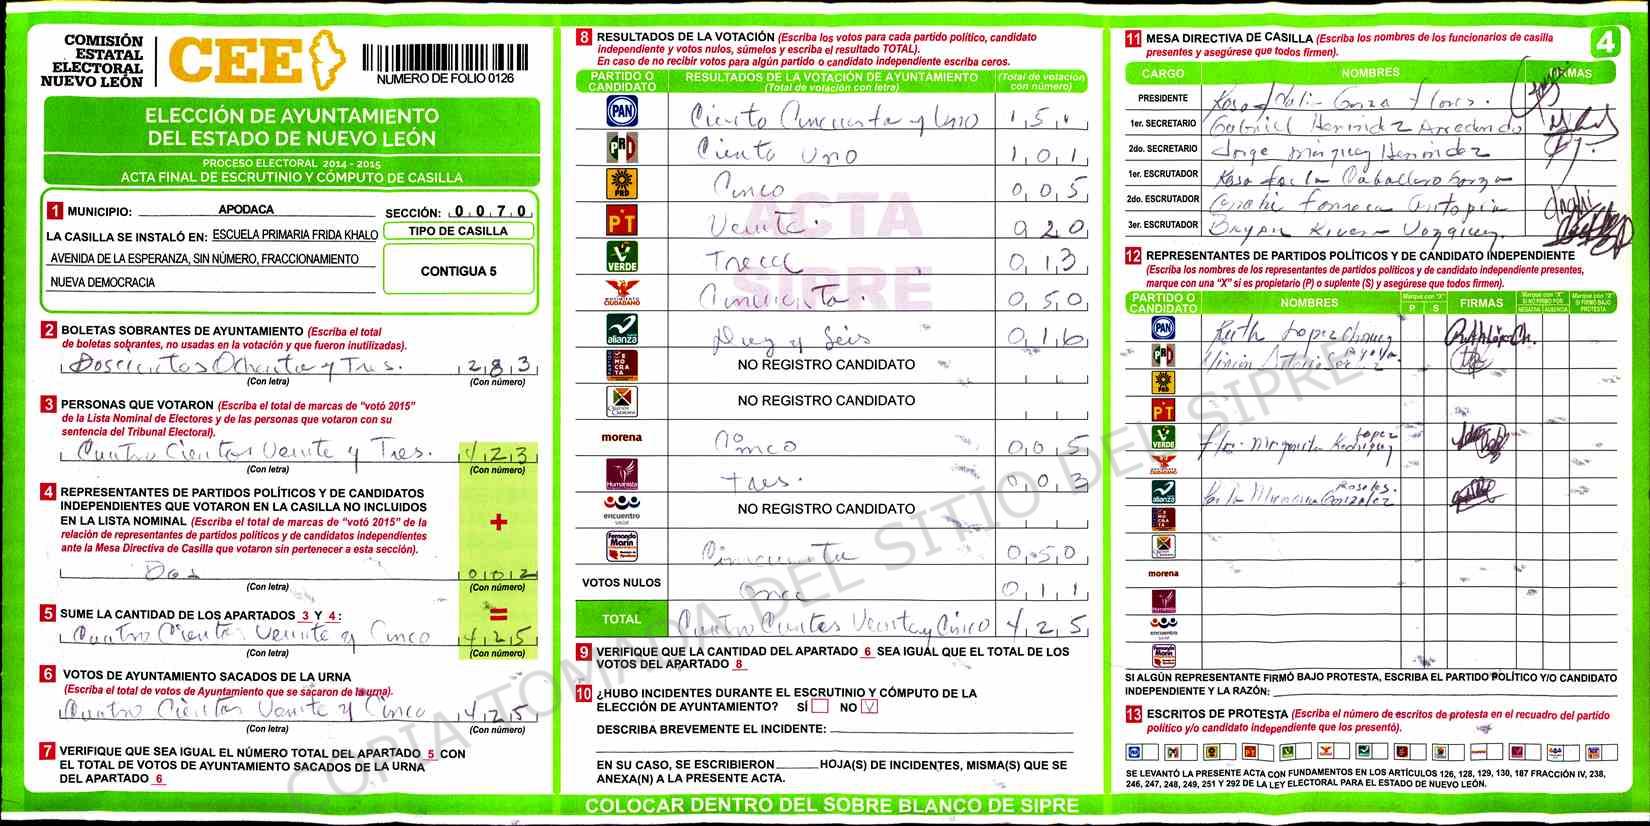 COMISIÓN
ESTATAL
ELECTORAL
NUEVO LEÓN
CEE
NUMERO DE FOLIO 0126
ELECCIÓN DE AYUNTAMIENTO
DEL ESTADO DE NUEVO LEÓN
PROCESO ELECTORAL 2014 - 2015
ACTA FINAL DE ESCRUTINIO Y CÓMPUTO DE CASILLA
1 MUNICIPIO: APODACA SECCIÓN: 0 0 7 0
LA CASILLA SE INSTALÓ EN: ESCUELA PRIMARIA FRIDA KHALO
AVENIDA DE LA ESPERANZA, SIN NÚMERO, FRACCIONAMIENTO
NUEVA DEMOCRACIA
TIPO DE CASILLA
CONTIGUA 5
2 BOLETAS SOBRANTES DE AYUNTAMIENTO (Escriba el total
de boletas sobrantes, no usadas en la votación y que fueron inutilizadas).
Doscientos Ochenta y Tres. 2 8 3
(Con letra) (Con número)
3 PERSONAS QUE VOTARON (Escriba el total de marcas de “votó 2015”
de la Lista Nominal de Electores y de las personas que votaron con su
sentencia del Tribunal Electoral).
Cuatro Cientos Veinte y Tres. 4 2 3
(Con letra) (Con número)
4 REPRESENTANTES DE PARTIDOS POLÍTICOS Y DE CANDIDATOS
INDEPENDIENTES QUE VOTARON EN LA CASILLA NO INCLUIDOS
EN LA LISTA NOMINAL (Escriba el total de marcas de “votó 2015” de la
relación de representantes de partidos políticos y de candidatos independientes
ante la Mesa Directiva de Casilla que votaron sin pertenecer a esta sección).
+
Dos 0 0 2
(Con letra) (Con número)
=
5 SUME LA CANTIDAD DE LOS APARTADOS 3 Y 4:
Cuatro Cientos Veinte y Cinco 4 2 5
(Con letra) (Con número)
6 VOTOS DE AYUNTAMIENTO SACADOS DE LA URNA
(Escriba el total de votos de Ayuntamiento que se sacaron de la urna).
Cuatro Cientos Veinte y Cinco 4 2 5
(Con letra) (Con número)
7 VERIFIQUE QUE SEA IGUAL EL NÚMERO TOTAL DEL APARTADO 5 CON
EL TOTAL DE VOTOS DE AYUNTAMIENTO SACADOS DE LA URNA
DEL APARTADO 6
8 RESULTADOS DE LA VOTACIÓN (Escriba los votos para cada partido político, candidato
independiente y votos nulos, súmelos y escriba el resultado TOTAL).
En caso de no recibir votos para algún partido o candidato independiente escriba ceros.
PARTIDO O CANDIDATO RESULTADOS DE LA VOTACIÓN DE AYUNTAMIENTO (Total de votación con letra) (Total de votación con número)
PAN Ciento Cincuenta y Uno 1 5 1
PRI Ciento Uno 1 0 1
PRD Cinco 0 0 5
PT Veinte 0 2 0
VERDE Trece 0 1 3
MOVIMIENTO CIUDADANO Cincuenta. 0 5 0
alianza Diez y Seis 0 1 6
DEMÓCRATA NO REGISTRO CANDIDATO
NO REGISTRO CANDIDATO
morena Cinco 0 0 5
Humanista tres. 0 0 3
encuentro social NO REGISTRO CANDIDATO
Fernando Marín Cincuenta 0 5 0
VOTOS NULOS Once 0 1 1
TOTAL Cuatro Cientos Veinte y Cinco 4 2 5
ACTA
SIPRE
9 VERIFIQUE QUE LA CANTIDAD DEL APARTADO 6 SEA IGUAL QUE EL TOTAL DE LOS
VOTOS DEL APARTADO 8
10 ¿HUBO INCIDENTES DURANTE EL ESCRUTINIO Y CÓMPUTO DE LA
ELECCIÓN DE AYUNTAMIENTO? SÍ NO
DESCRIBA BREVEMENTE EL INCIDENTE:
EN SU CASO, SE ESCRIBIERON HOJA(S) DE INCIDENTES, MISMA(S) QUE SE
ANEXA(N) A LA PRESENTE ACTA.
COLOCAR DENTRO DEL SOBRE BLANCO DE SIPRE
11 MESA DIRECTIVA DE CASILLA (Escriba los nombres de los funcionarios de casilla
presentes y asegúrese que todos firmen).
4
CARGO NOMBRES FIRMAS
PRESIDENTE Rosa Garza Flores.
1er. SECRETARIO Gabriel Hernández Arredondo
2do. SECRETARIO Jorge Hernindez
1er. ESCRUTADOR Rosa Caballero Garza
2do. ESCRUTADOR Fonseca
3er. ESCRUTADOR Bryan Rivera Vazquez.
12 REPRESENTANTES DE PARTIDOS POLÍTICOS Y DE CANDIDATO INDEPENDIENTE
(Escriba los nombres de los representantes de partidos políticos y de candidato independiente presentes,
marque con una “X” si es propietario (P) o suplente (S) y asegúrese que todos firmen).
PARTIDO O CANDIDATO NOMBRES Marque con "X" P S FIRMAS Marque con "X" SI NO FIRMÓ POR: NEGATIVA AUSENCIA Marque con "X" SI FIRMÓ BAJO PROTESTA
PAN Ruth Lopez
PRI
PRD
PT
VERDE Margarita Lopez Rodriguez
CIUDADANO
alianza Rosales Gonzalez
morena
Humanista
encuentro
Fernando Marín
SI ALGÚN REPRESENTANTE FIRMÓ BAJO PROTESTA, ESCRIBA EL PARTIDO POLÍTICO Y/O CANDIDATO
INDEPENDIENTE Y LA RAZÓN:
13 ESCRITOS DE PROTESTA (Escriba el número de escritos de protesta en el recuadro del partido
político y/o candidato independiente que los presentó).
SE LEVANTÓ LA PRESENTE ACTA CON FUNDAMENTOS EN LOS ARTÍCULOS 126, 128, 129, 130, 187 FRACCIÓN IV, 238,
246, 247, 248, 249, 251 Y 292 DE LA LEY ELECTORAL PARA EL ESTADO DE NUEVO LEÓN.
COPIA TOMADA DEL SITIO DEL SIPRE